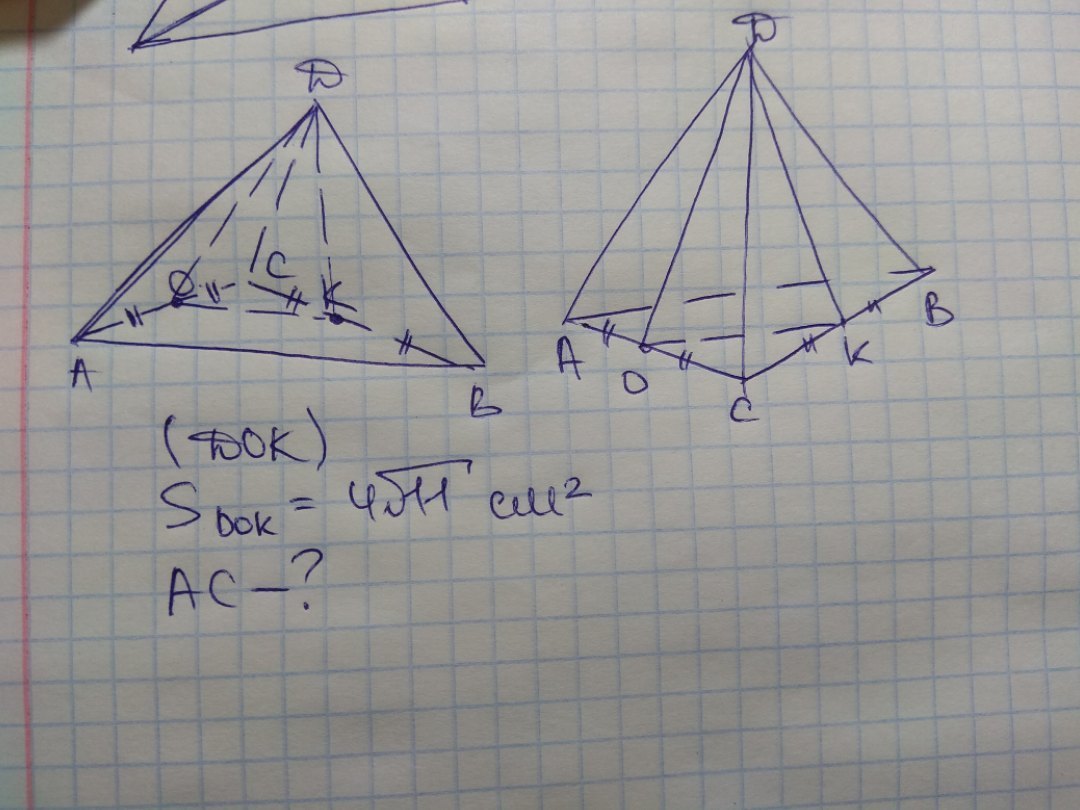 D
D
O
C
K
A
B
A
O
C
K
B
(DOK)
S DOK = 4√11 см²
AC - ?